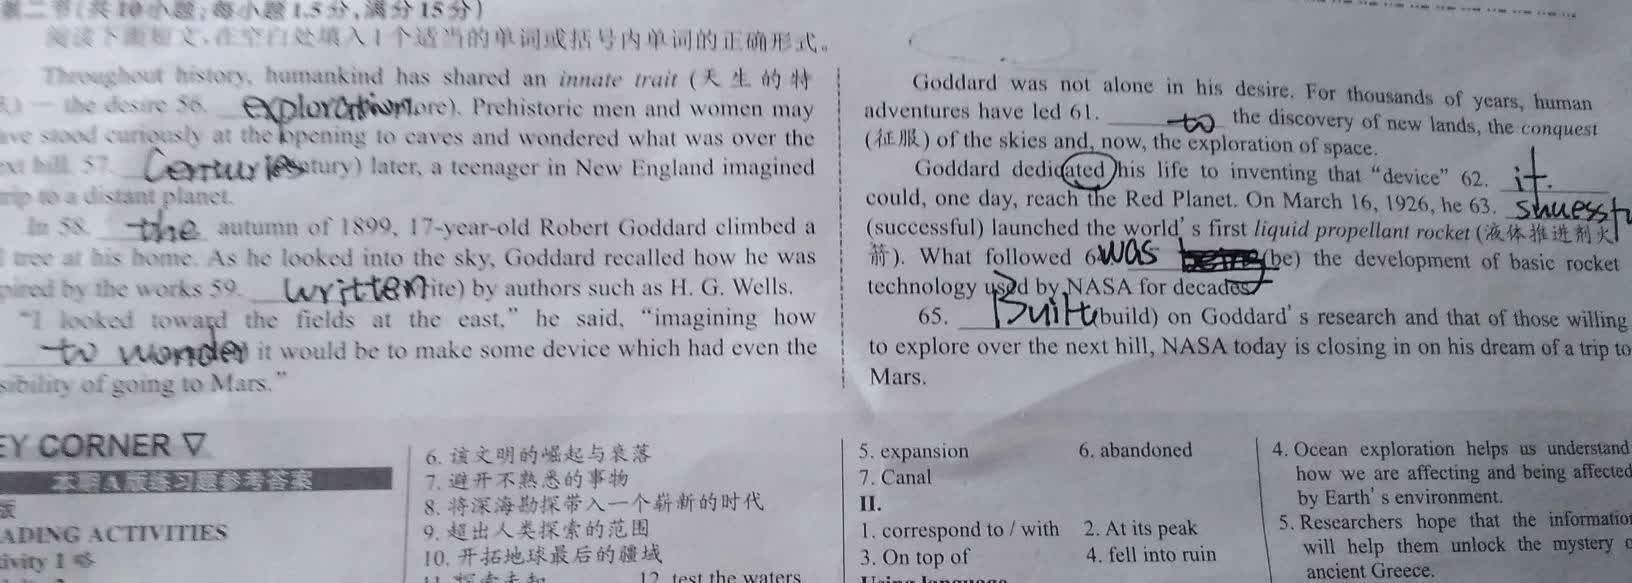 第二节(共10小题;每小题1.5分,满分15分)
阅读下面短文,在空白处填入1个适当的单词或括号内单词的正确形式。
Throughout history, humankind has shared an innate trait (天生的特
— the desire 56. exploration ore). Prehistoric men and women may
ave stood curiously at the opening to caves and wondered what was over the
xt hill. 57. Centuries tury) later, a teenager in New England imagined
rip to a distant planet.
In 58. the autumn of 1899, 17-year-old Robert Goddard climbed a
tree at his home. As he looked into the sky, Goddard recalled how he was
pired by the works 59. written ite) by authors such as H. G. Wells.
"I looked toward the fields at the east," he said, "imagining how
to wonder it would be to make some device which had even the
sibility of going to Mars."
Goddard was not alone in his desire. For thousands of years, human
adventures have led 61. to the discovery of new lands, the conquest
(征服) of the skies and, now, the exploration of space.
Goddard dedicated his life to inventing that "device" 62. it.
could, one day, reach the Red Planet. On March 16, 1926, he 63.
(successful) launched the world's first liquid propellant rocket (液体推进剂火
箭). What followed 6 was (be) the development of basic rocket
technology used by NASA for decades
65. Built (build) on Goddard's research and that of those willing
to explore over the next hill, NASA today is closing in on his dream of a trip to
Mars.
EY CORNER ▽
本期A版练习题参考答案
版
ADING ACTIVITIES
ivity 1 略
6. 该文明的崛起与衰落
7. 避开不熟悉的事物
8. 将深海勘探带入一个崭新的时代
9. 超出人类探索的范围
10. 开拓地球最后的疆域
11. 探索未知 12. test the waters
5. expansion 6. abandoned
7. Canal
II.
1. correspond to / with 2. At its peak
3. On top of 4. fell into ruin
Using language
4. Ocean exploration helps us understand
how we are affecting and being affected
by Earth's environment.
5. Researchers hope that the informatio
will help them unlock the mystery o
ancient Greece.